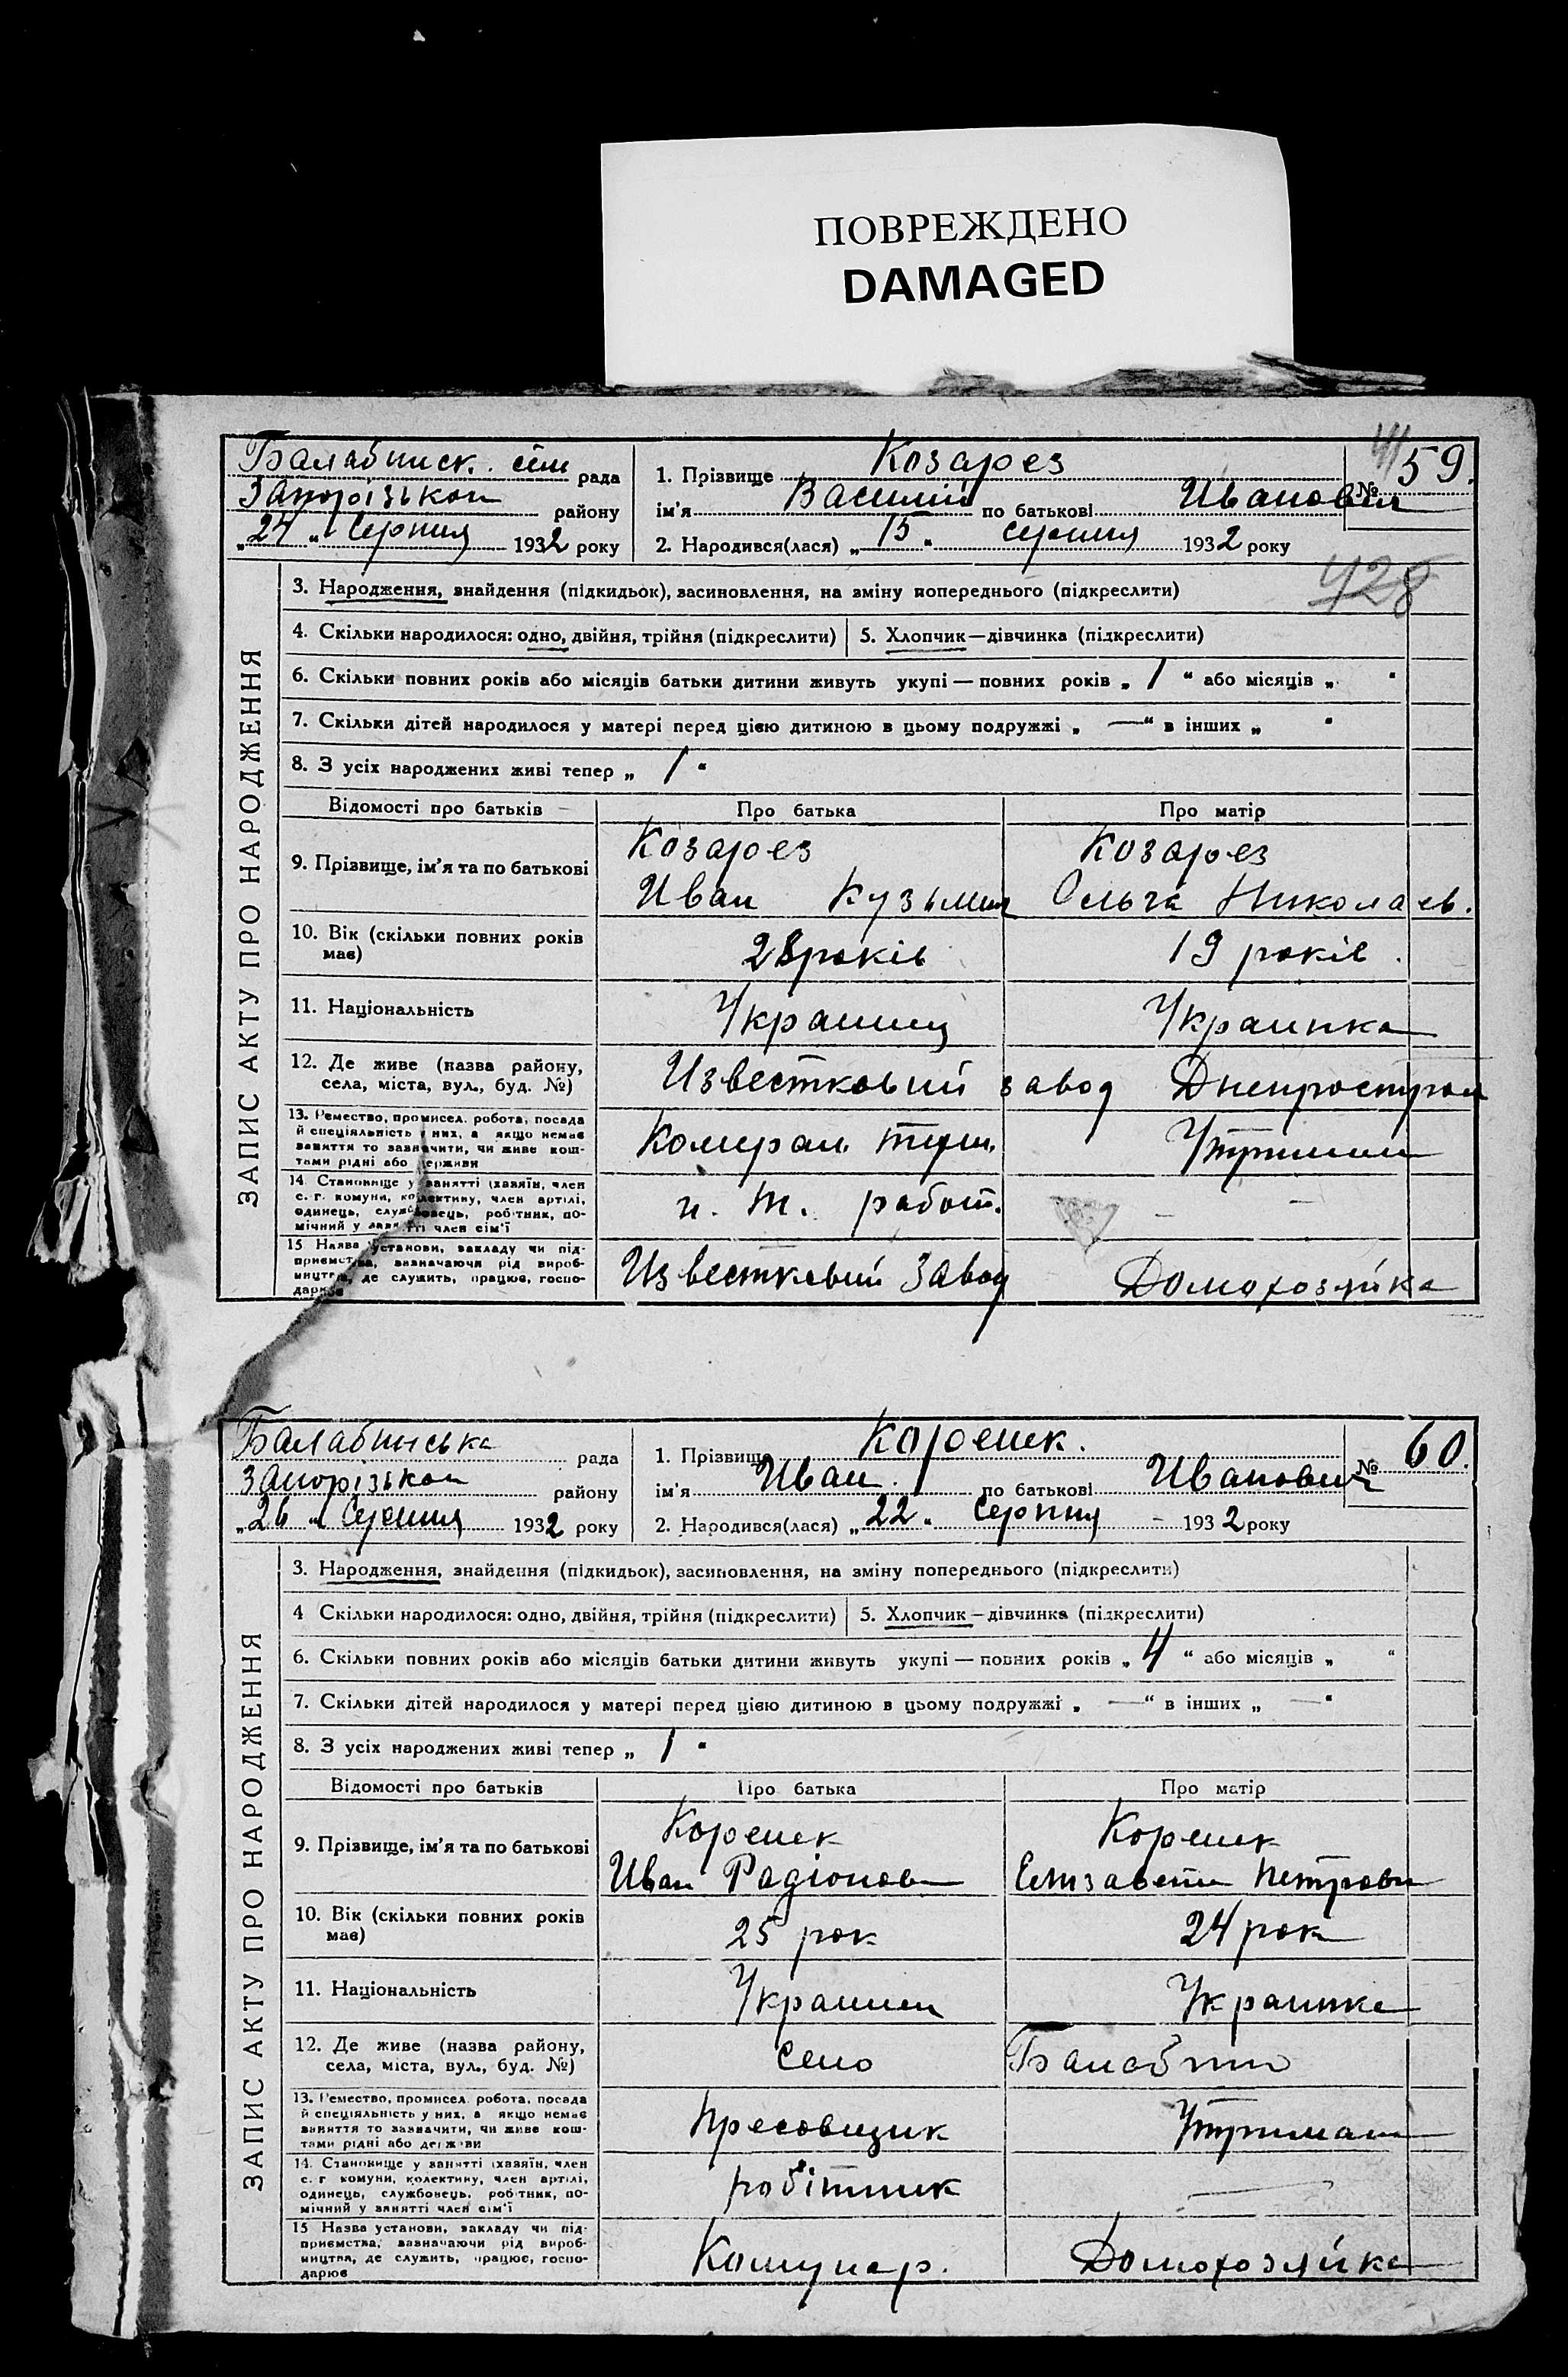 ПОВРЕЖДЕНО
DAMAGED
Балабинск. сіль рада
Запорізькои району
„24“ Серпня 1932 року
1. Прізвище Козарез
№ 59.
ім'я Василий по батькові Иванович
2. Народився(лася) „15“ серпня 1932 року
428
ЗАПИС АКТУ ПРО НАРОДЖЕННЯ
3. Народження, знайдення (підкидьок), засиновлення, на зміну попереднього (підкреслити)
4. Скільки народилося: одно, двійня, трійня (підкреслити) 5. Хлопчик—дівчинка (підкреслити)
6. Скільки повних років або місяців батьки дитини живуть укупі — повних років „ 1 “ або місяців „ “
7. Скільки дітей народилося у матері перед цією дитиною в цьому подружжі „ — “ в інших „ “
8. З усіх народжених живі тепер „ 1 “
Відомості про батьків Про батька Про матір
9. Прізвище, ім'я та по батькові
Козарез
Иван Кузьмич
Козарез
Ольга Николаев.
10. Вік (скільки повних років має)
28 років
19 років.
11. Національність
Украинец
Украинка
12. Де живе (назва району, села, міста, вул., буд. №)
Известковий завод Днепрострой
13. Ремество, промисел, робота, посада
й спеціяльність у них, а якщо немає
заняття то зазначити, чи живе кош-
тами рідні або держави
14. Становище у занятті (хазяїн, член
с. г. комуни, колективу, член артілі,
одинець, службовець, робітник, по-
мічний у занятті член сім'ї
и. т. работ.
—
15 Назва установи, закладу чи під-
приємства, зазначаючи рід вироб-
ництва, де служить, працює, госпо-
дарює
Известковий Завод
Домохозяйка
Балабинська рада
Запорізькои району
„26“ Серпня 1932 року
1. Прізвище Коренек.
№ 60.
ім'я Иван. по батькові Иванович
2. Народився(лася) „22“ Серпня 1932 року
ЗАПИС АКТУ ПРО НАРОДЖЕННЯ
3. Народження, знайдення (підкидьок), засиновлення, на зміну попереднього (підкреслити)
4 Скільки народилося: одно, двійня, трійня (підкреслити) 5. Хлопчик—дівчинка (підкреслити)
6. Скільки повних років або місяців батьки дитини живуть укупі — повних років „ 4 “ або місяців „ “
7. Скільки дітей народилося у матері перед цією дитиною в цьому подружжі „ — “ в інших „ — “
8. З усіх народжених живі тепер „ 1 “
Відомості про батьків Про батька Про матір
9. Прізвище, ім'я та по батькові
Коренек
Иван Радіонов
Коренек
Елизавета Петровн
10. Вік (скільки повних років має)
25 рок
24 рок
11. Національність
Украинец
Украинка
12. Де живе (назва району, села, міста, вул., буд. №)
Село Балабино
13. Ремество, промисел, робота, посада
й спеціяльність у них, а якщо немає
заняття то зазначити, чи живе кош-
тами рідні або держави
Пресовщик
Утриман
14. Становище у занятті (хазяїн, член
с. г комуни, колективу, член артілі,
одинець, службовець, робітник, по-
мічний у занятті член сім'ї
робітник
—
15 Назва установи, закладу чи під-
приємства, зазначаючи рід вироб-
ництва, де служить, працює, госпо-
дарює
Комунар.
Домохозяйка